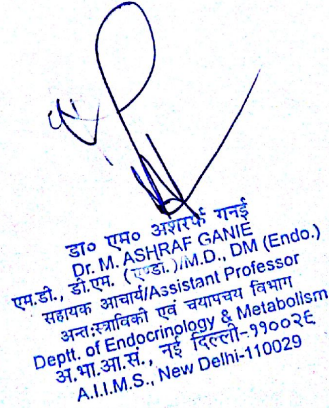 डा० एम० अशरफ गनई
Dr. M. ASHRAF GANIE
एम.डी., डी.एम. (एण्डो.)/M.D., DM (Endo.)
सहायक आचार्य/Assistant Professor
अन्तःस्त्राविकी एवं चयापचय विभाग
Deptt. of Endocrinology & Metabolism
अ.भा.आ.सं., नई दिल्ली-११००२९
A.I.I.M.S., New Delhi-110029